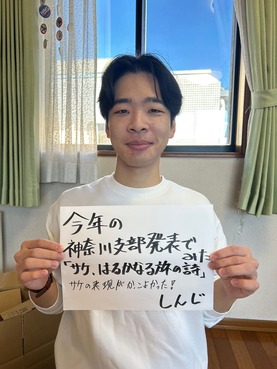 今年の
神奈川支部発表で
みた
「サケ、はるかなる旅の詩」
サケの表現がかっこよかった!
しんじ